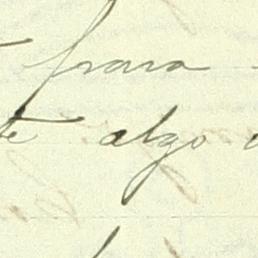 para
te algo